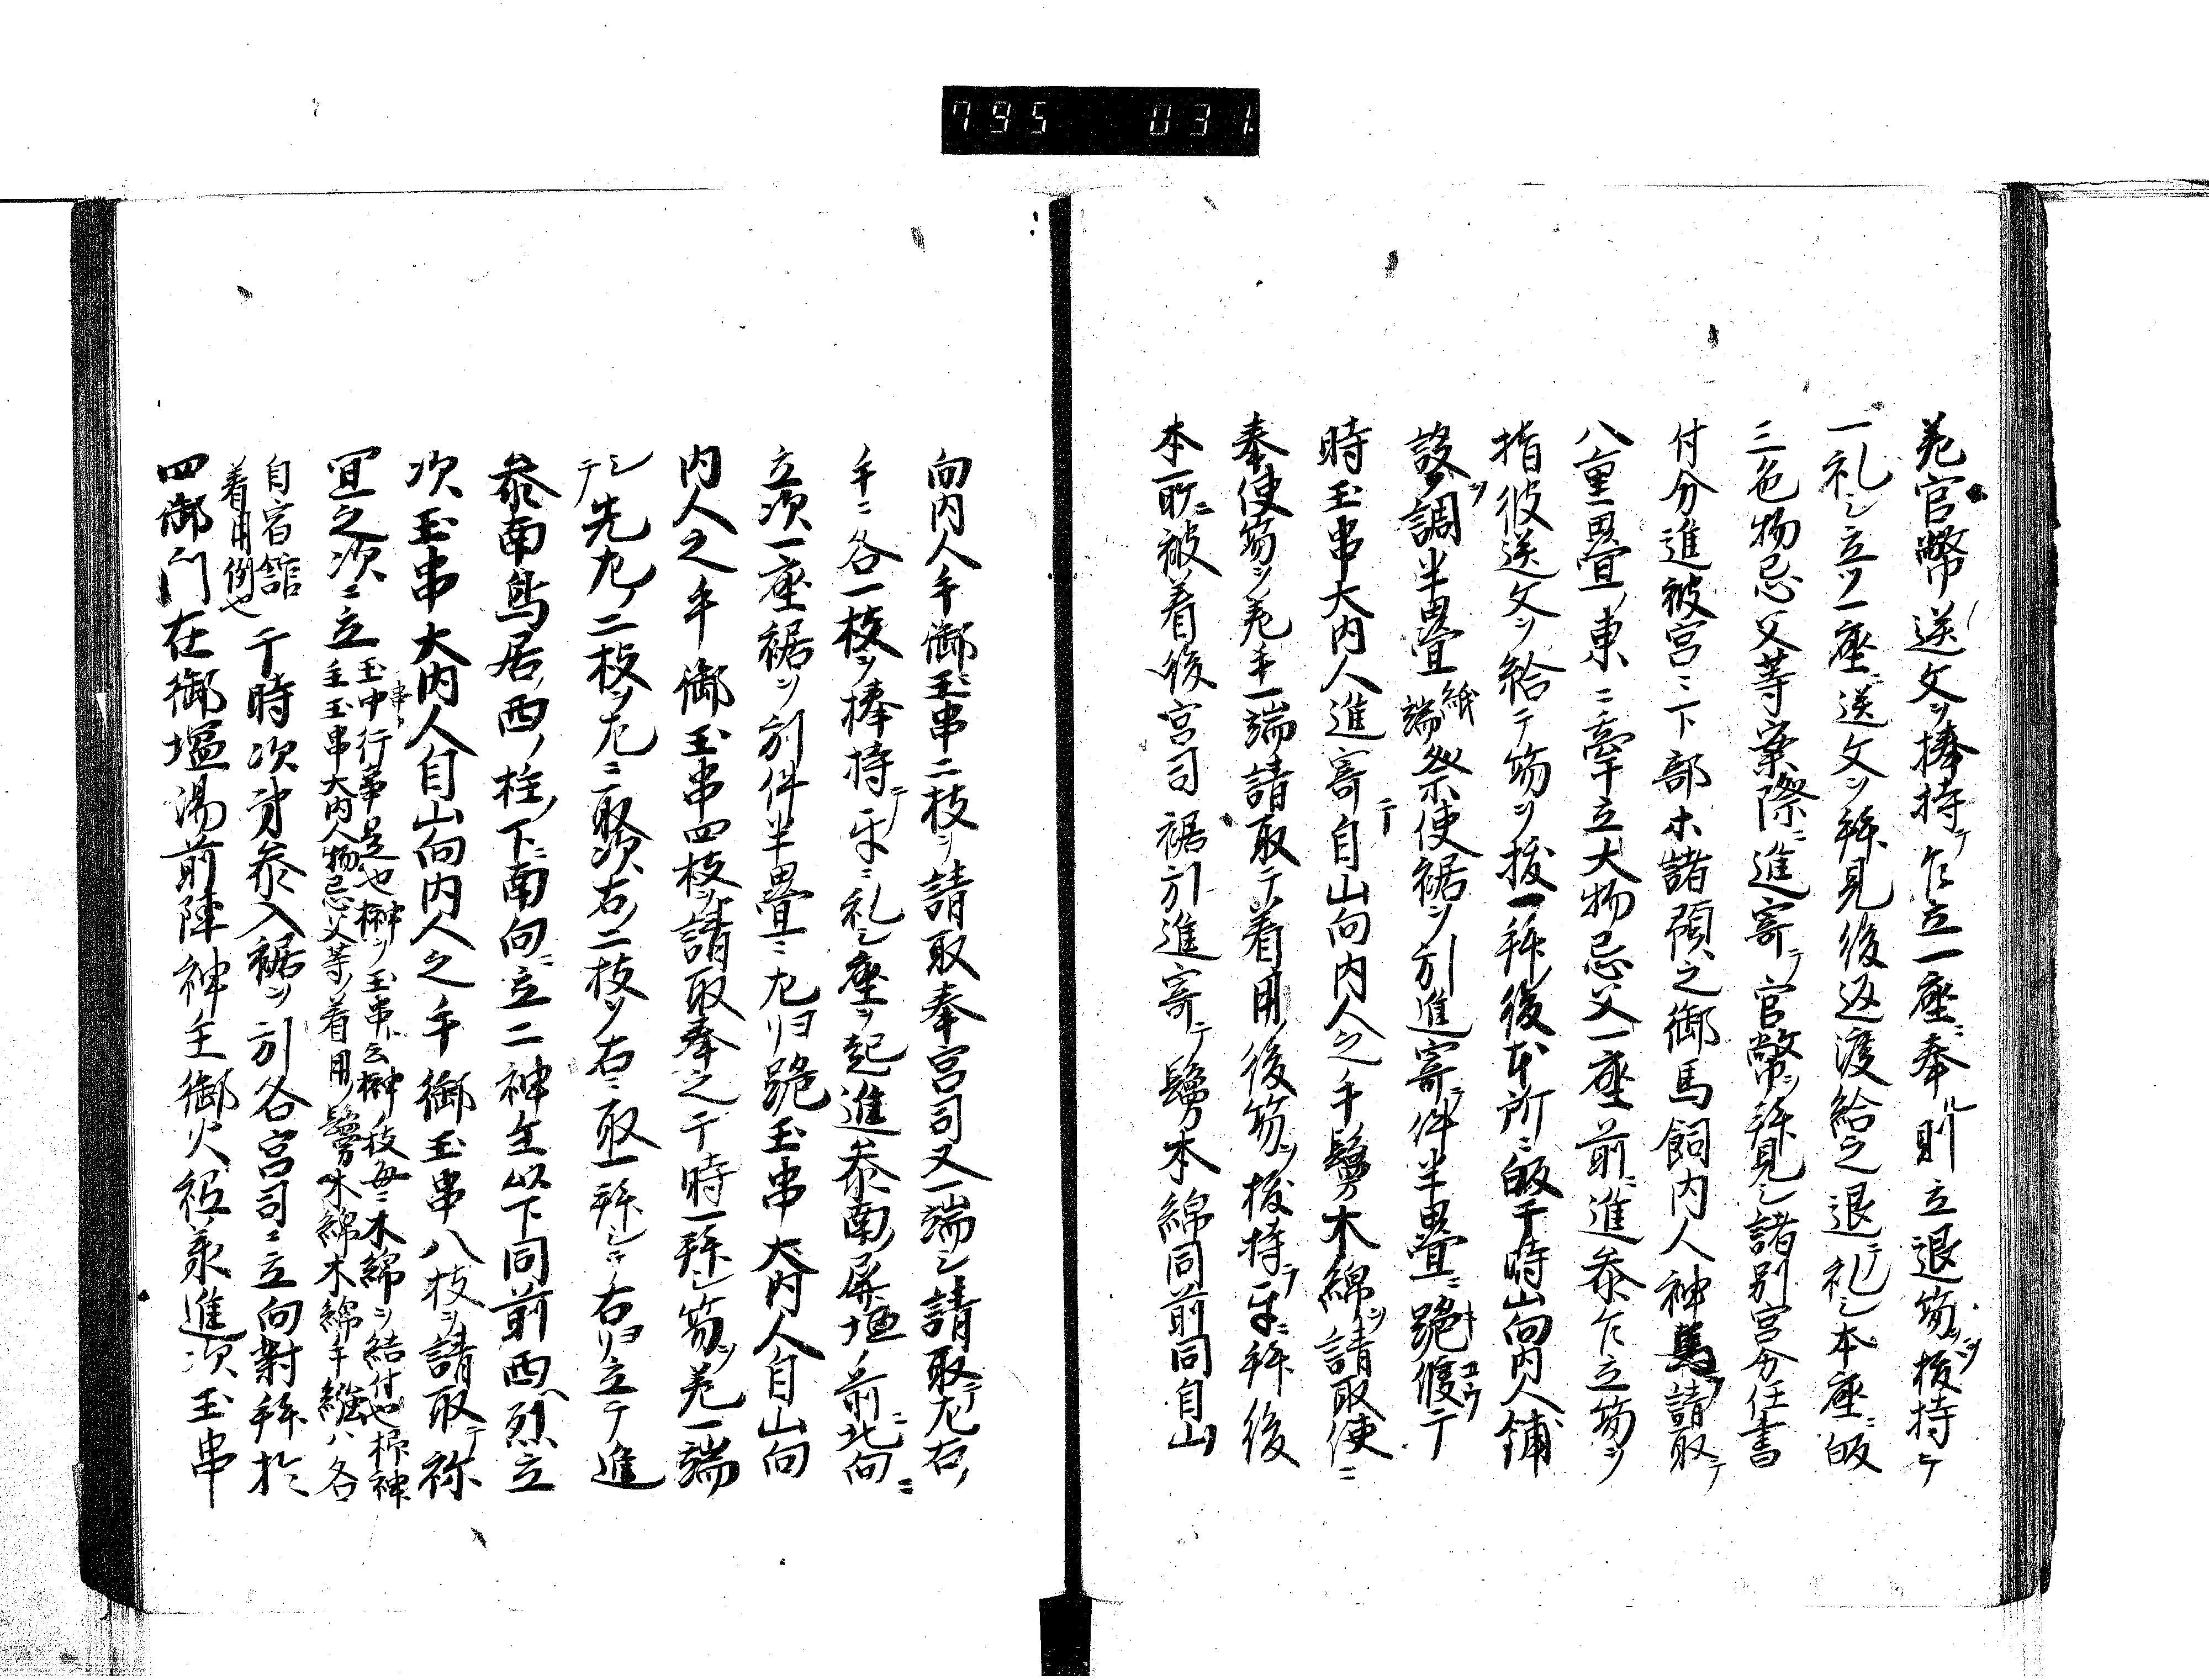 795 031
苑官幣送文ヲ捧持テ乍立一座ニ奉ル則立退笏ヲ抜持テ
一礼シ立ツ一座ニ送文ヲ拜見後返渡給之退テ礼シ本座ニ皈
三色物忌父等案際ニ進寄テ官幣ヲ拜見シ諸別宮分任書
付分進被宮ニ下部木諸預之御馬飼内人神馬ヲ請取テ
八重畳ノ東ニ牽立大物忌父一座前ニ進参乍立笏ヲ
指彼送文ヲ給テ笏ヲ抜一拜後本所ニ皈于時山向内人鋪
設ヲ調半畳紙端祭使裾ヲ引進寄テ件半畳ニ跪候于
時玉串大内人進寄テ自山向内人之手鬘木綿ヲ請取使ニ
奉使笏ヲ苑手一端請取テ着用後笏ヲ抜持テ手ニ拜後
本所ニ被着後宮司裾引進寄テ鬘木綿同前同自山
向内人手御玉串二枝ヲ請取奉宮司又一端シ請取テ左右ノ
手ニ各一枝ヲ捧持テ手ニ礼シ座ヲ起進参南屏垣ノ前ニ北向ニ
立次一座裾ヲ引件半畳ニ左ヨリ跪玉串大内人自山向
内人之手御玉串四枝ヲ請取奉之于時一拜シ笏ヲ苑一端
シテ先左ノ二枝ヲ左ニ取次右ノ二枝ヲ右ニ取一拜シテ右ヨリ立テ進
参南鳥居ノ西ノ柱ノ下ニ南向ニ立二神主以下同前西ヘ烈立
次玉串大内人自山向内人之手御玉串八枝ヲ請取テ祢
宜之次ニ立玉串行事是也榊ヲ玉串ト云榊枝毎ニ木綿ヲ結付也祢神
主玉串大内人物忌父等ノ着用ノ鬘木綿木綿手繦ハ各
自宿舘
着用例也于時次才参入裾ヲ引各宮司ニ立向對拜於
四御門在御塩湯前陣神主御火祗承進次玉串